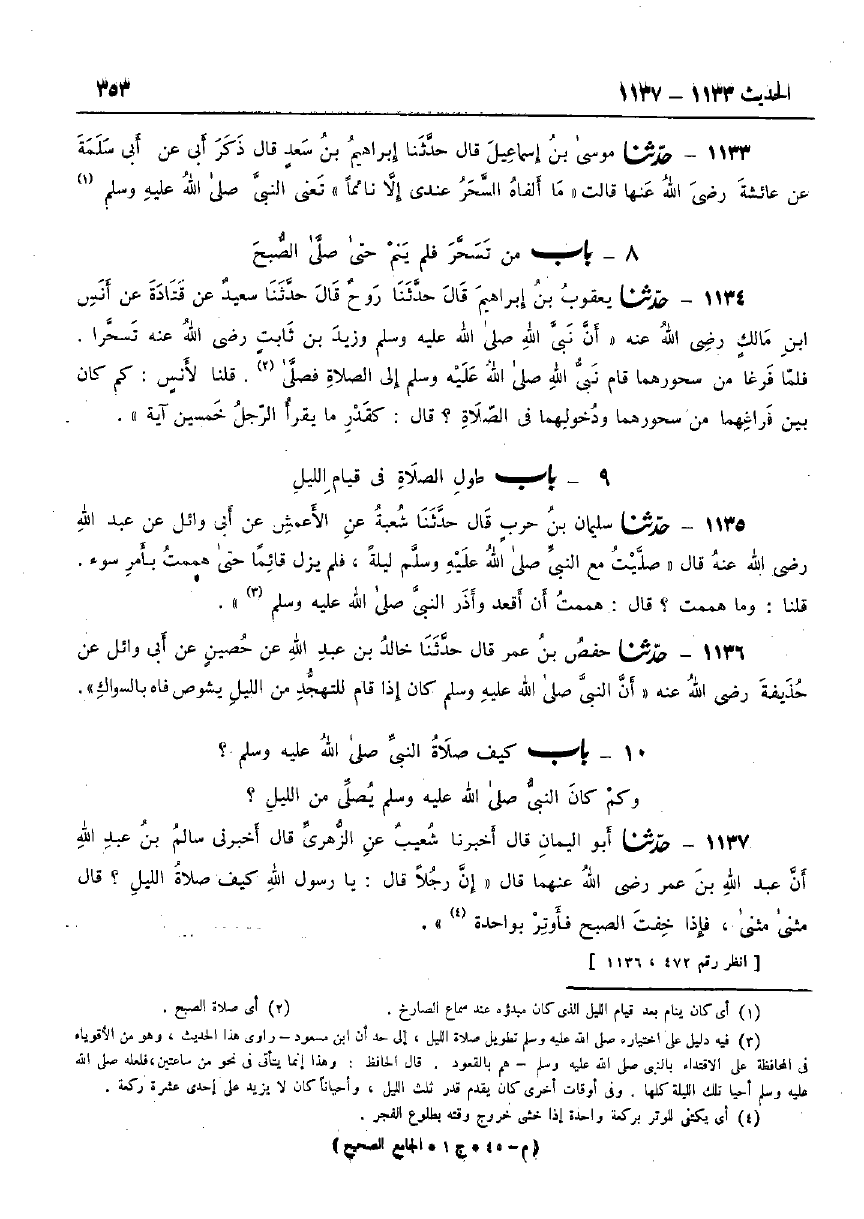 الحديث ١١٣٣ – ١١٣٧ ٣٥٣
١١٣٣ – حدّثنا موسىٰ بنُ إسماعِيلَ قال حدَّثَنا إبراهيمُ بنُ سَعدٍ قال ذَكَرَ أبى عن أبى سَلَمَةَ
عن عائشةَ رضىَ اللهُ عَنها قالت « مَا ألفاهُ السَّحَرُ عندى إلَّا نائماً » تَعنى النبىَّ صلىٰ اللهُ عليهِ وسلم (١)
٨ – باب من تَسَحَّرَ فلم يَنَمْ حتىٰ صلَّىٰ الصُّبحَ
١١٣٤ – حدّثنا يعقوبُ بنُ إبراهيمَ قَالَ حدَّثَنَا رَوحٌ قَالَ حدَّثَنَا سعيدٌ عن قَتَادَةَ عن أنَسِ
ابنِ مَالكٍ رضِى اللهُ عنه « أنَّ نَبىَّ اللهِ صلىٰ الله عليه وسلم وزيدَ بن ثَابتٍ رضى اللهُ عنه تَسحَّرا .
فلمّا فَرغا من سحورهما قام نَبىُّ اللهِ صلىٰ اللهُ عَلَيْه وسلم إلى الصلاةِ فصلَّىٰ (٢) . قلنا لأنَسٍ : كم كان
بين فَراغِهما من سحورهما ودُخولِهما فى الصَّلَاةِ ؟ قال : كقَدْرِ ما يقرأُ الرّجلُ خَمسين آية » .
٩ – باب طولِ الصلَاةِ فى قيامِ الليلِ
١١٣٥ – حدّثنا سليمان بنُ حربٍ قَال حدَّثَنَا شُعبةُ عنِ الأعمشِ عن أبى وائل عن عبد اللهِ
رضى الله عنهُ قال « صلَّيْتُ مع النبىِّ صلىٰ اللهُ علَيْهِ وسلَّم ليلةً ، فلم يزل قائِمًا حتىٰ هممتُ بأمرِ سوء .
قلنا : وما هممت ؟ قال : هممتُ أن أقعد وأذَر النبىَّ صلىٰ الله عليه وسلم (٣) » .
١١٣٦ – حدّثنا حفصُ بنُ عمر قال حدَّثَنَا خالدُ بن عبدِ اللهِ عن حُصينٍ عن أبى وائل عن
حُذَيفةَ رضى اللهُ عنه « أنَّ النبىَّ صلىٰ الله عليهِ وسلم كان إذا قام للتهجُّدِ من الليلِ يشوص فاه بالسواكِ» .
١٠ – باب كيف صلَاةُ النبىِّ صلىٰ اللهُ عليه وسلم ؟
وكمْ كانَ النبىُّ صلىٰ الله عليه وسلم يُصلِّى من الليلِ ؟
١١٣٧ – حدّثنا أبو اليمانِ قال أخبرنا شُعيبٌ عنِ الزُّهرىِّ قال أخبرنى سالمُ بنُ عبدِ اللهِ
أنَّ عبد اللهِ بنَ عمر رضى اللهُ عنهما قال « إنَّ رجُلاً قال : يا رسول اللهِ كيف صلاةُ الليلِ ؟ قال
مثنىٰ مثنىٰ ، فإذا خِفتَ الصبح فأوتِرْ بواحدة (٤) » .
[ انظر رقم ٤٧٢ ، ١١٣٦ ]
(١) أى كان ينام بعد قيام الليل الذى كان مبدؤه عند سماع الصارخ . (٢) أى صلاة الصبح .
(٣) فيه دليل على اختياره صلى الله عليه وسلم تطويل صلاة الليل ، إلى حد أن ابن مسعود – راوى هذا الحديث ، وهو من الأقوياء
فى المحافظة على الاقتداء بالنبى صلى الله عليه وسلم – هم بالقعود . قال الحافظ : وهذا إنما يتأتى فى نحو من ساعتين،فلعله صلى الله
عليه وسلم أحيا تلك الليلة كلها . وفى أوقات أخرى كان يقدم قدر ثلث الليل ، وأحياناً كان لا يزيد على إحدى عشرة ركعة .
(٤) أى يكتفى للوتر بركعة واحدة إذا خشى خروج وقته بطلوع الفجر .
(م – ٤٥ • ج ١ • الجامع الصحيح )